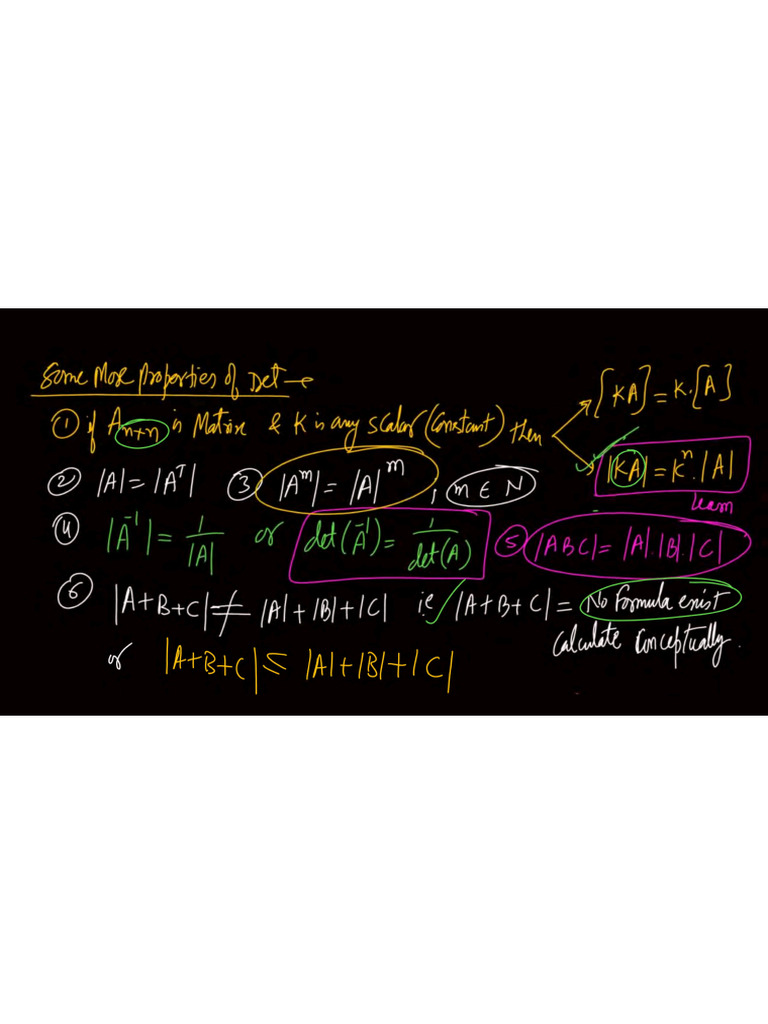 Some More Properties of Det →
① if A n×n is Matrix & K is any scalar (Constant) then [KA] = K.[A]
|KA| = Kⁿ.|A|
learn
② |A| = |Aᵀ| ③ |Aᵐ| = |A|ᵐ , m ∈ N
④ |A⁻¹| = 1/|A| or det(A⁻¹) = 1/det(A) ⑤ |ABC| = |A|.|B|.|C|
⑥ |A+B+C| ≠ |A|+|B|+|C| i.e |A+B+C| = No Formula exist
Calculate Conceptually.
or |A+B+C| ≤ |A|+|B|+|C|